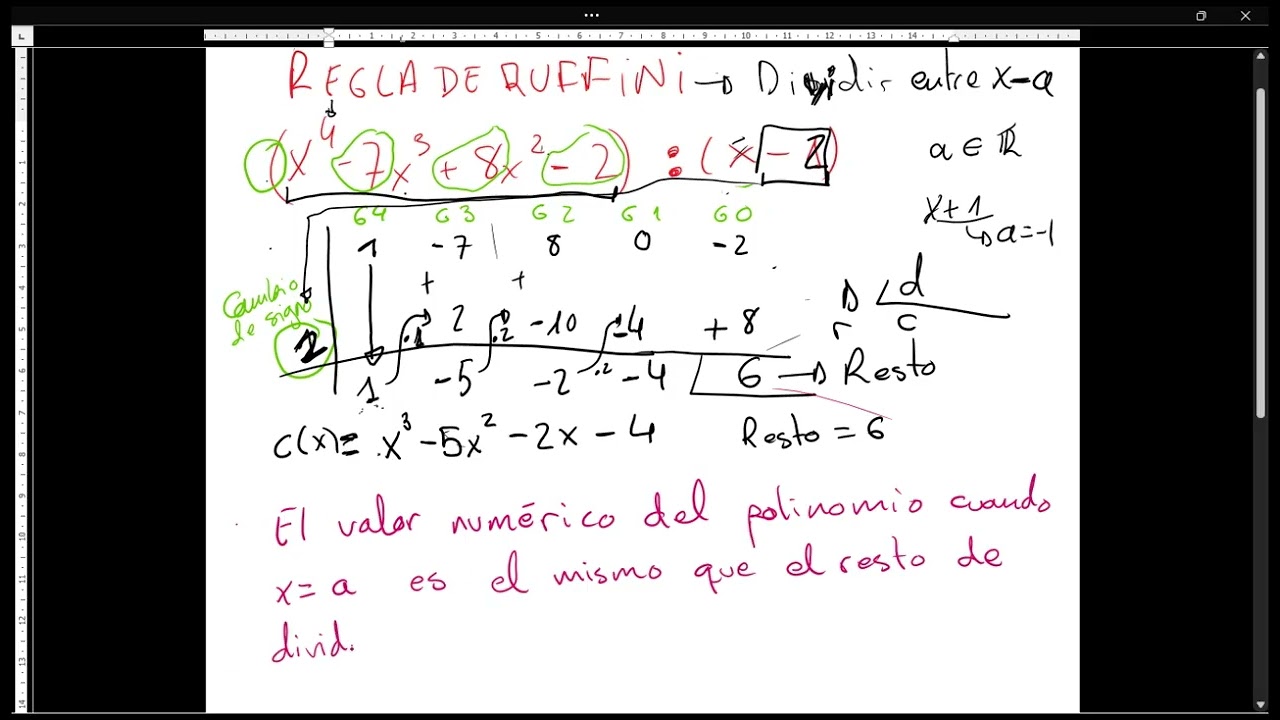 REGLA DE RUFFINI → Dividir entre x-a
(x⁴ -7x³ + 8x² - 2) : (x - 2)
a ∈ ℝ
x+1
↳ a=-1
G4 G3 G2 G1 G0
1 -7 8 0 -2
+ +
Cambio
de signo
2 2 -10 -4 +8
.2 .2
1 -5 -2 -4 6 → Resto
D d
r c
c(x)= x³ -5x² -2x -4 Resto = 6
El valor numérico del polinomio cuando
x= a es el mismo que el resto de
divid.